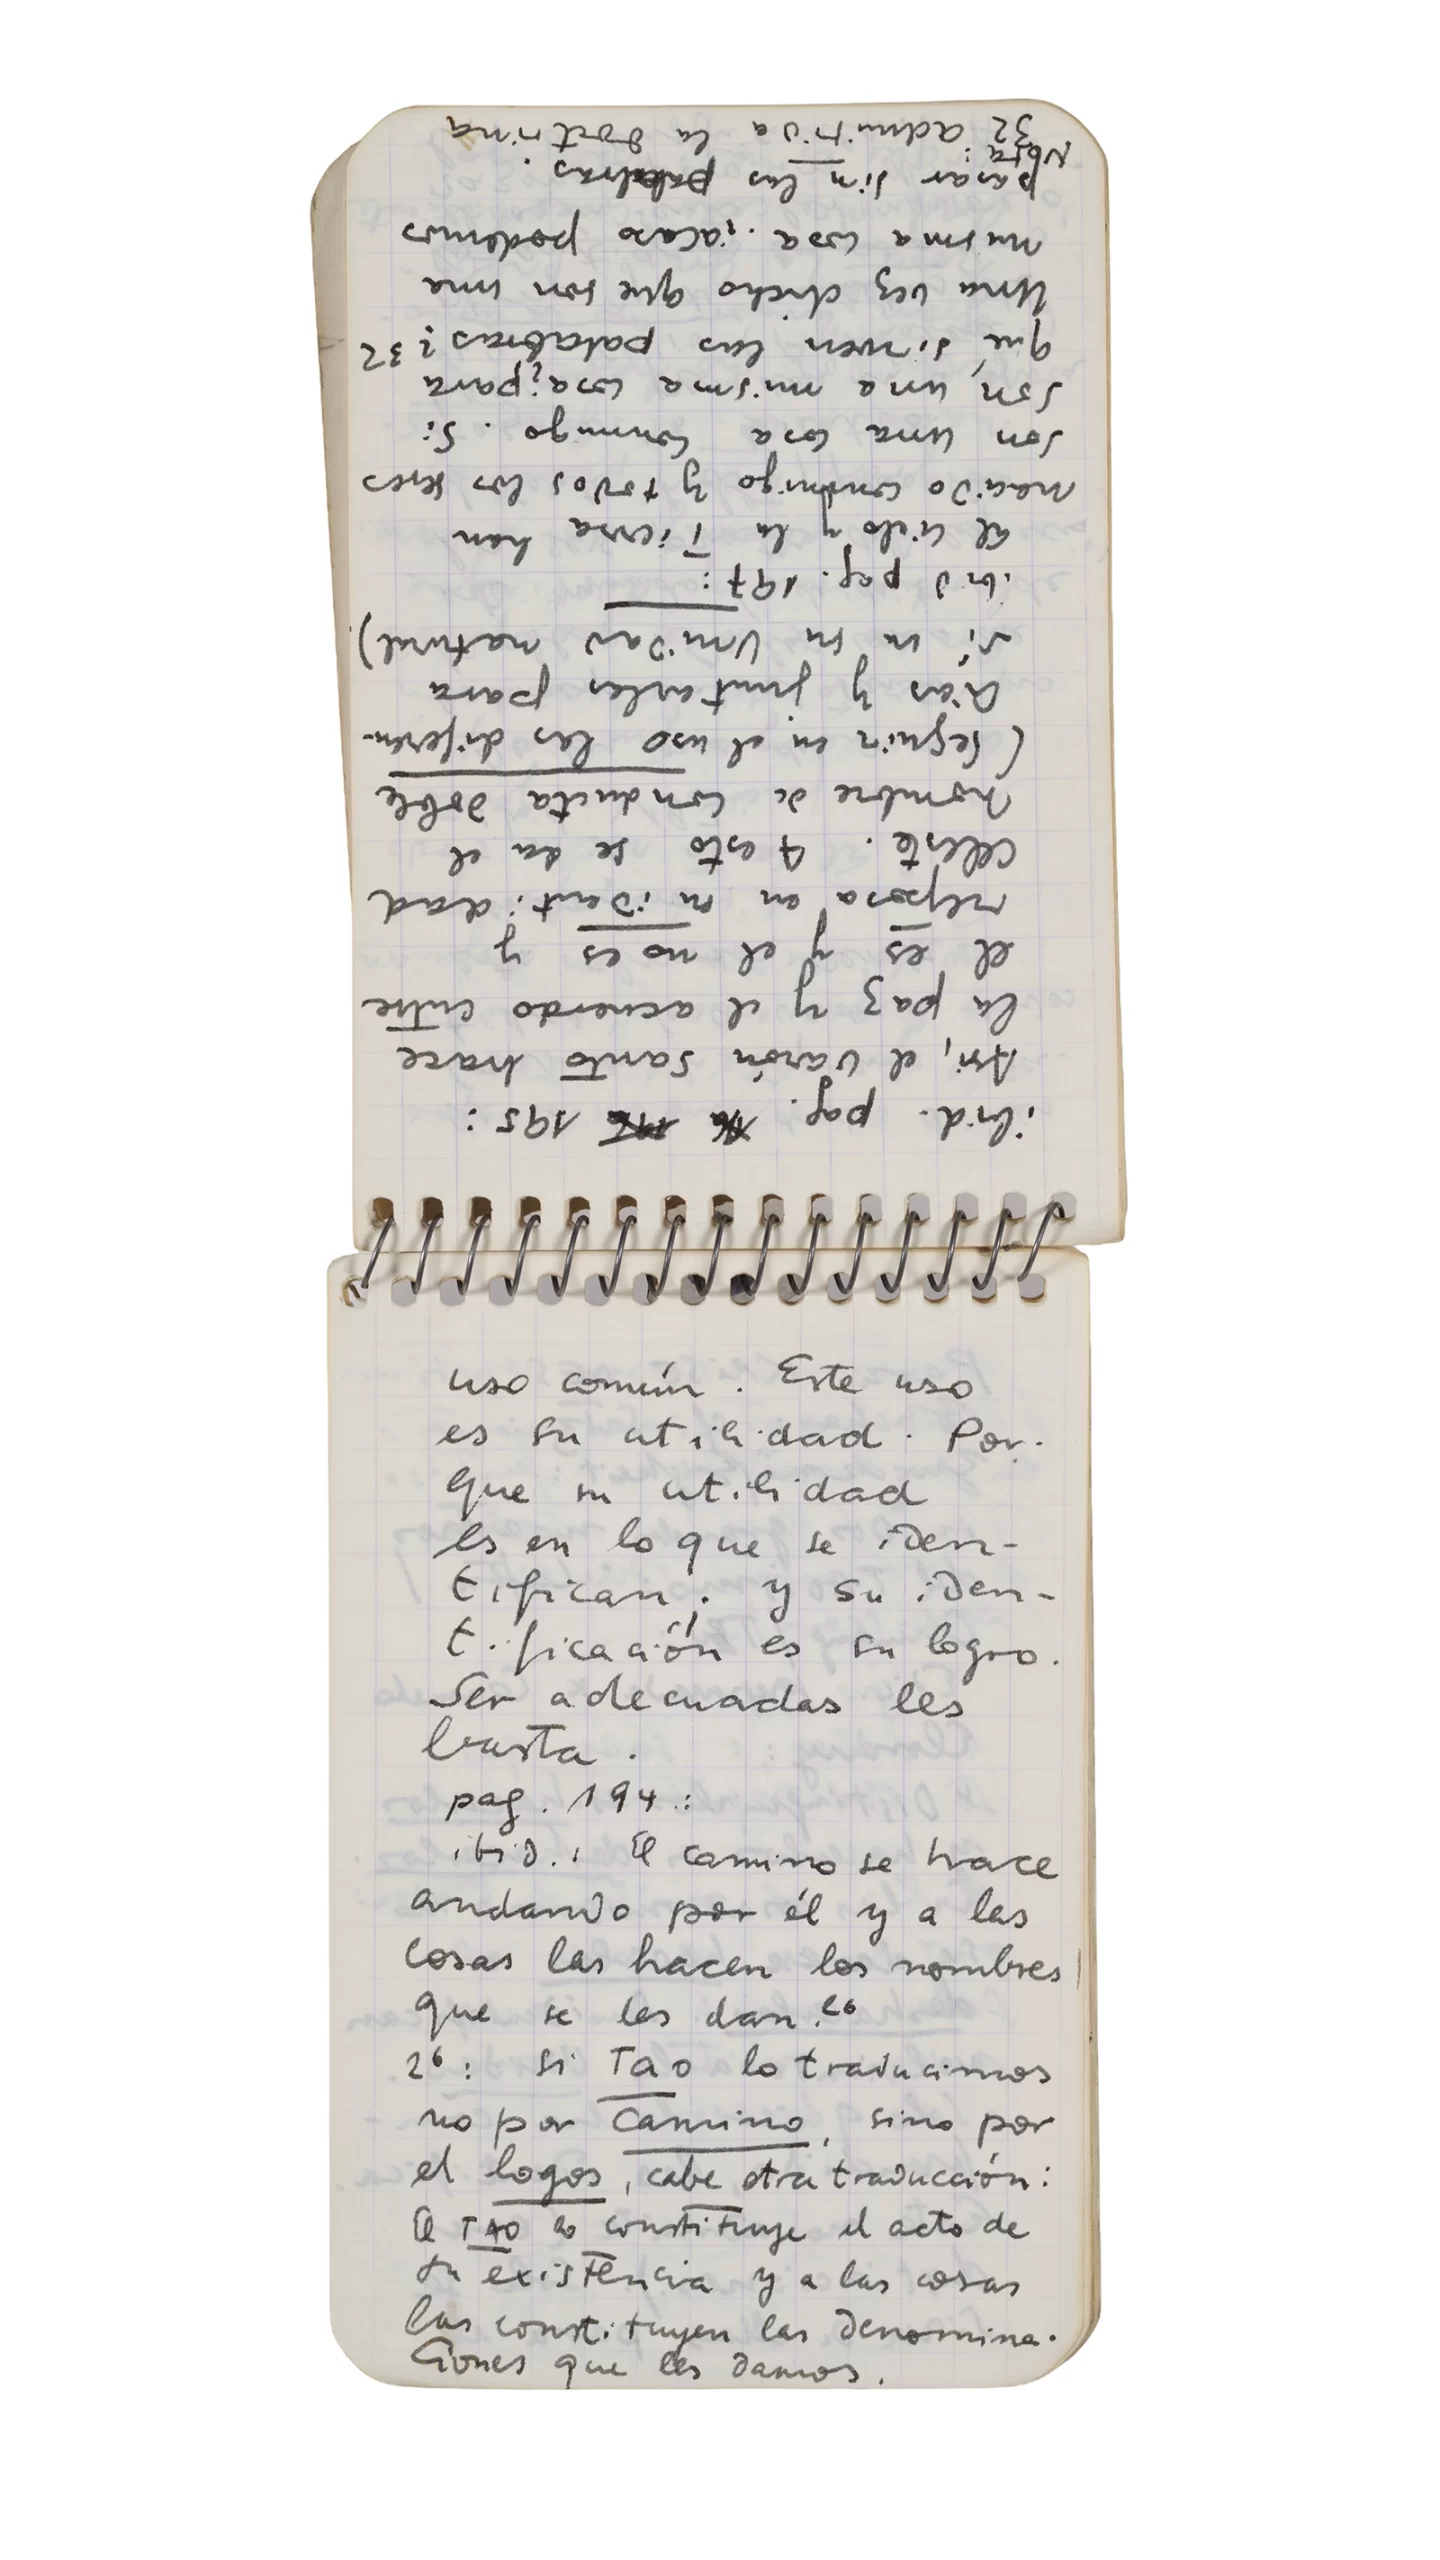 uso común. Este uso
es su utilidad. Por-
que su utilidad
es en lo que se iden-
tifican; y su iden-
tificación es su logro.
Ser adecuadas les
basta.
pag. 194:
ibid.: El camino se hace
andando por él y a las
cosas las hacen los nombres
que se les dan.26
26: si Tao lo traducimos
no por Camino, sino por
el logos, cabe otra traducción:
El TAO lo constituye el acto de
su existencia y a las cosas
las constituyen las denomina-
ciones que les damos.
ibid. pag. 195:
Asi, el varón santo hace
la paz y el acuerdo entre
el es y el no es y
reposa en su identidad
celeste. A esto se da el
nombre de conducta doble
(seguir en el uso las diferen-
cias y juntarlas para
sí en su Unidad natural)
ibid pag. 197:
el cielo y la Tierra han
nacido conmigo y todos los seres
son una cosa conmigo. Si
son una misma cosa ¿para
qué sirven las palabras? 32
Una vez dicho que son una
misma cosa. ¿acaso podemos
pasar sin las palabras.
Nota:
32 admitida la doctrina